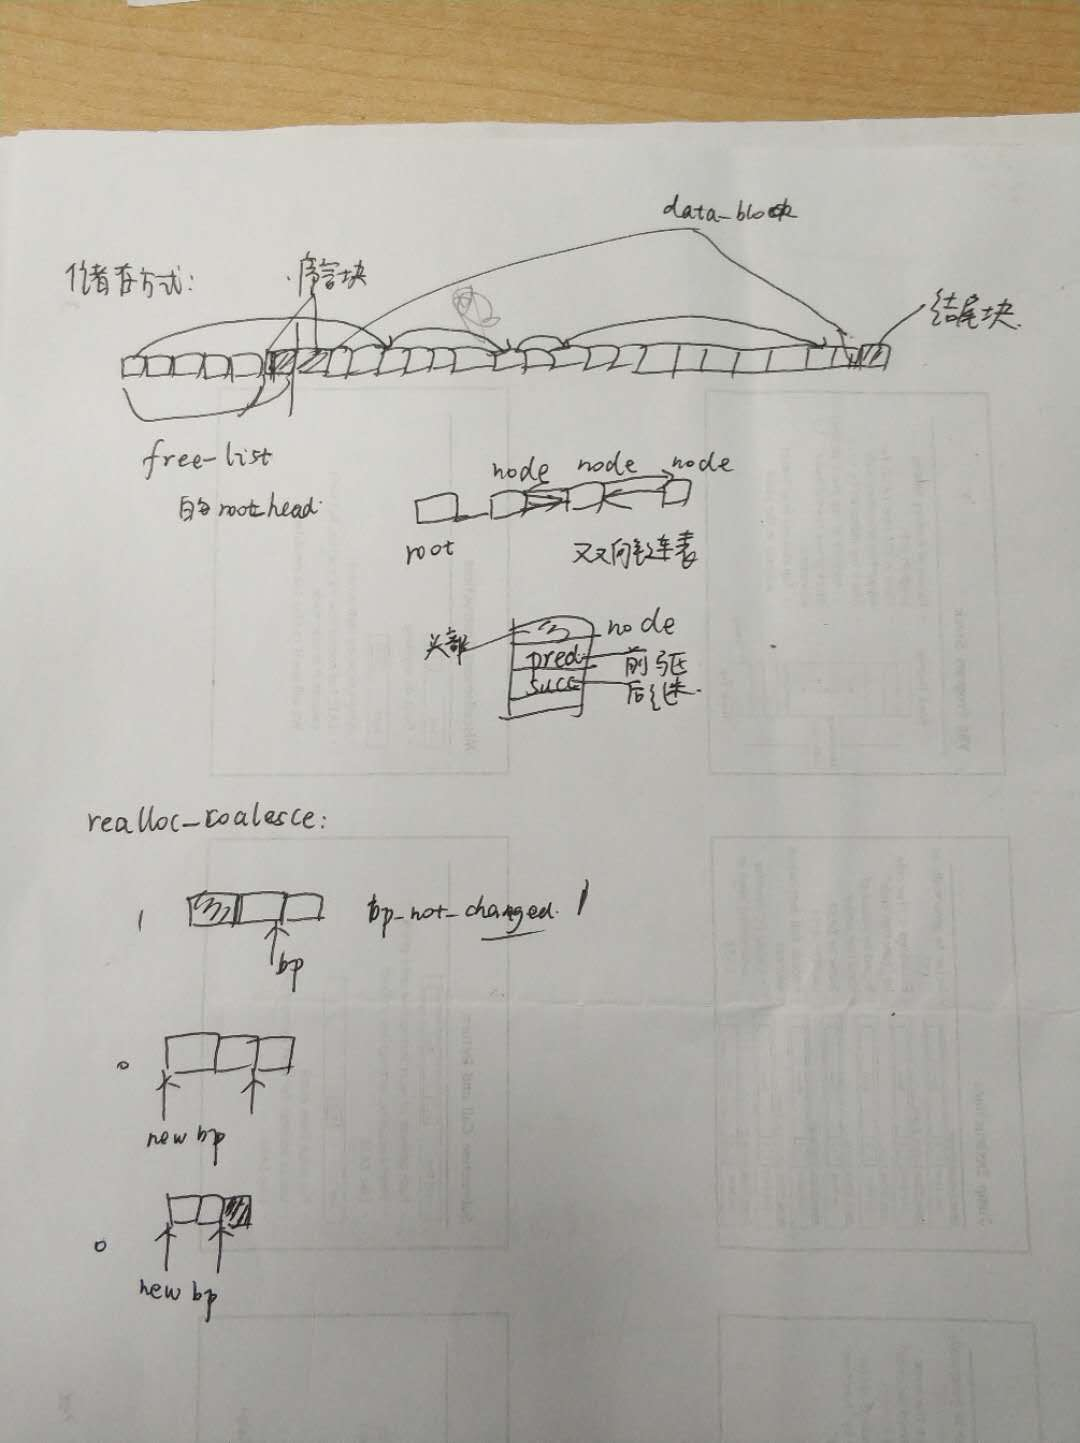 data_block
储存方式:
序言块
结尾块
free-list
的 root_head.
node node node
root
双向链表
头部
node
pred
前驱
succ
后继
realloc_coalesce:
1
bp_not_changed. 1
bp
0
new bp
0
new bp